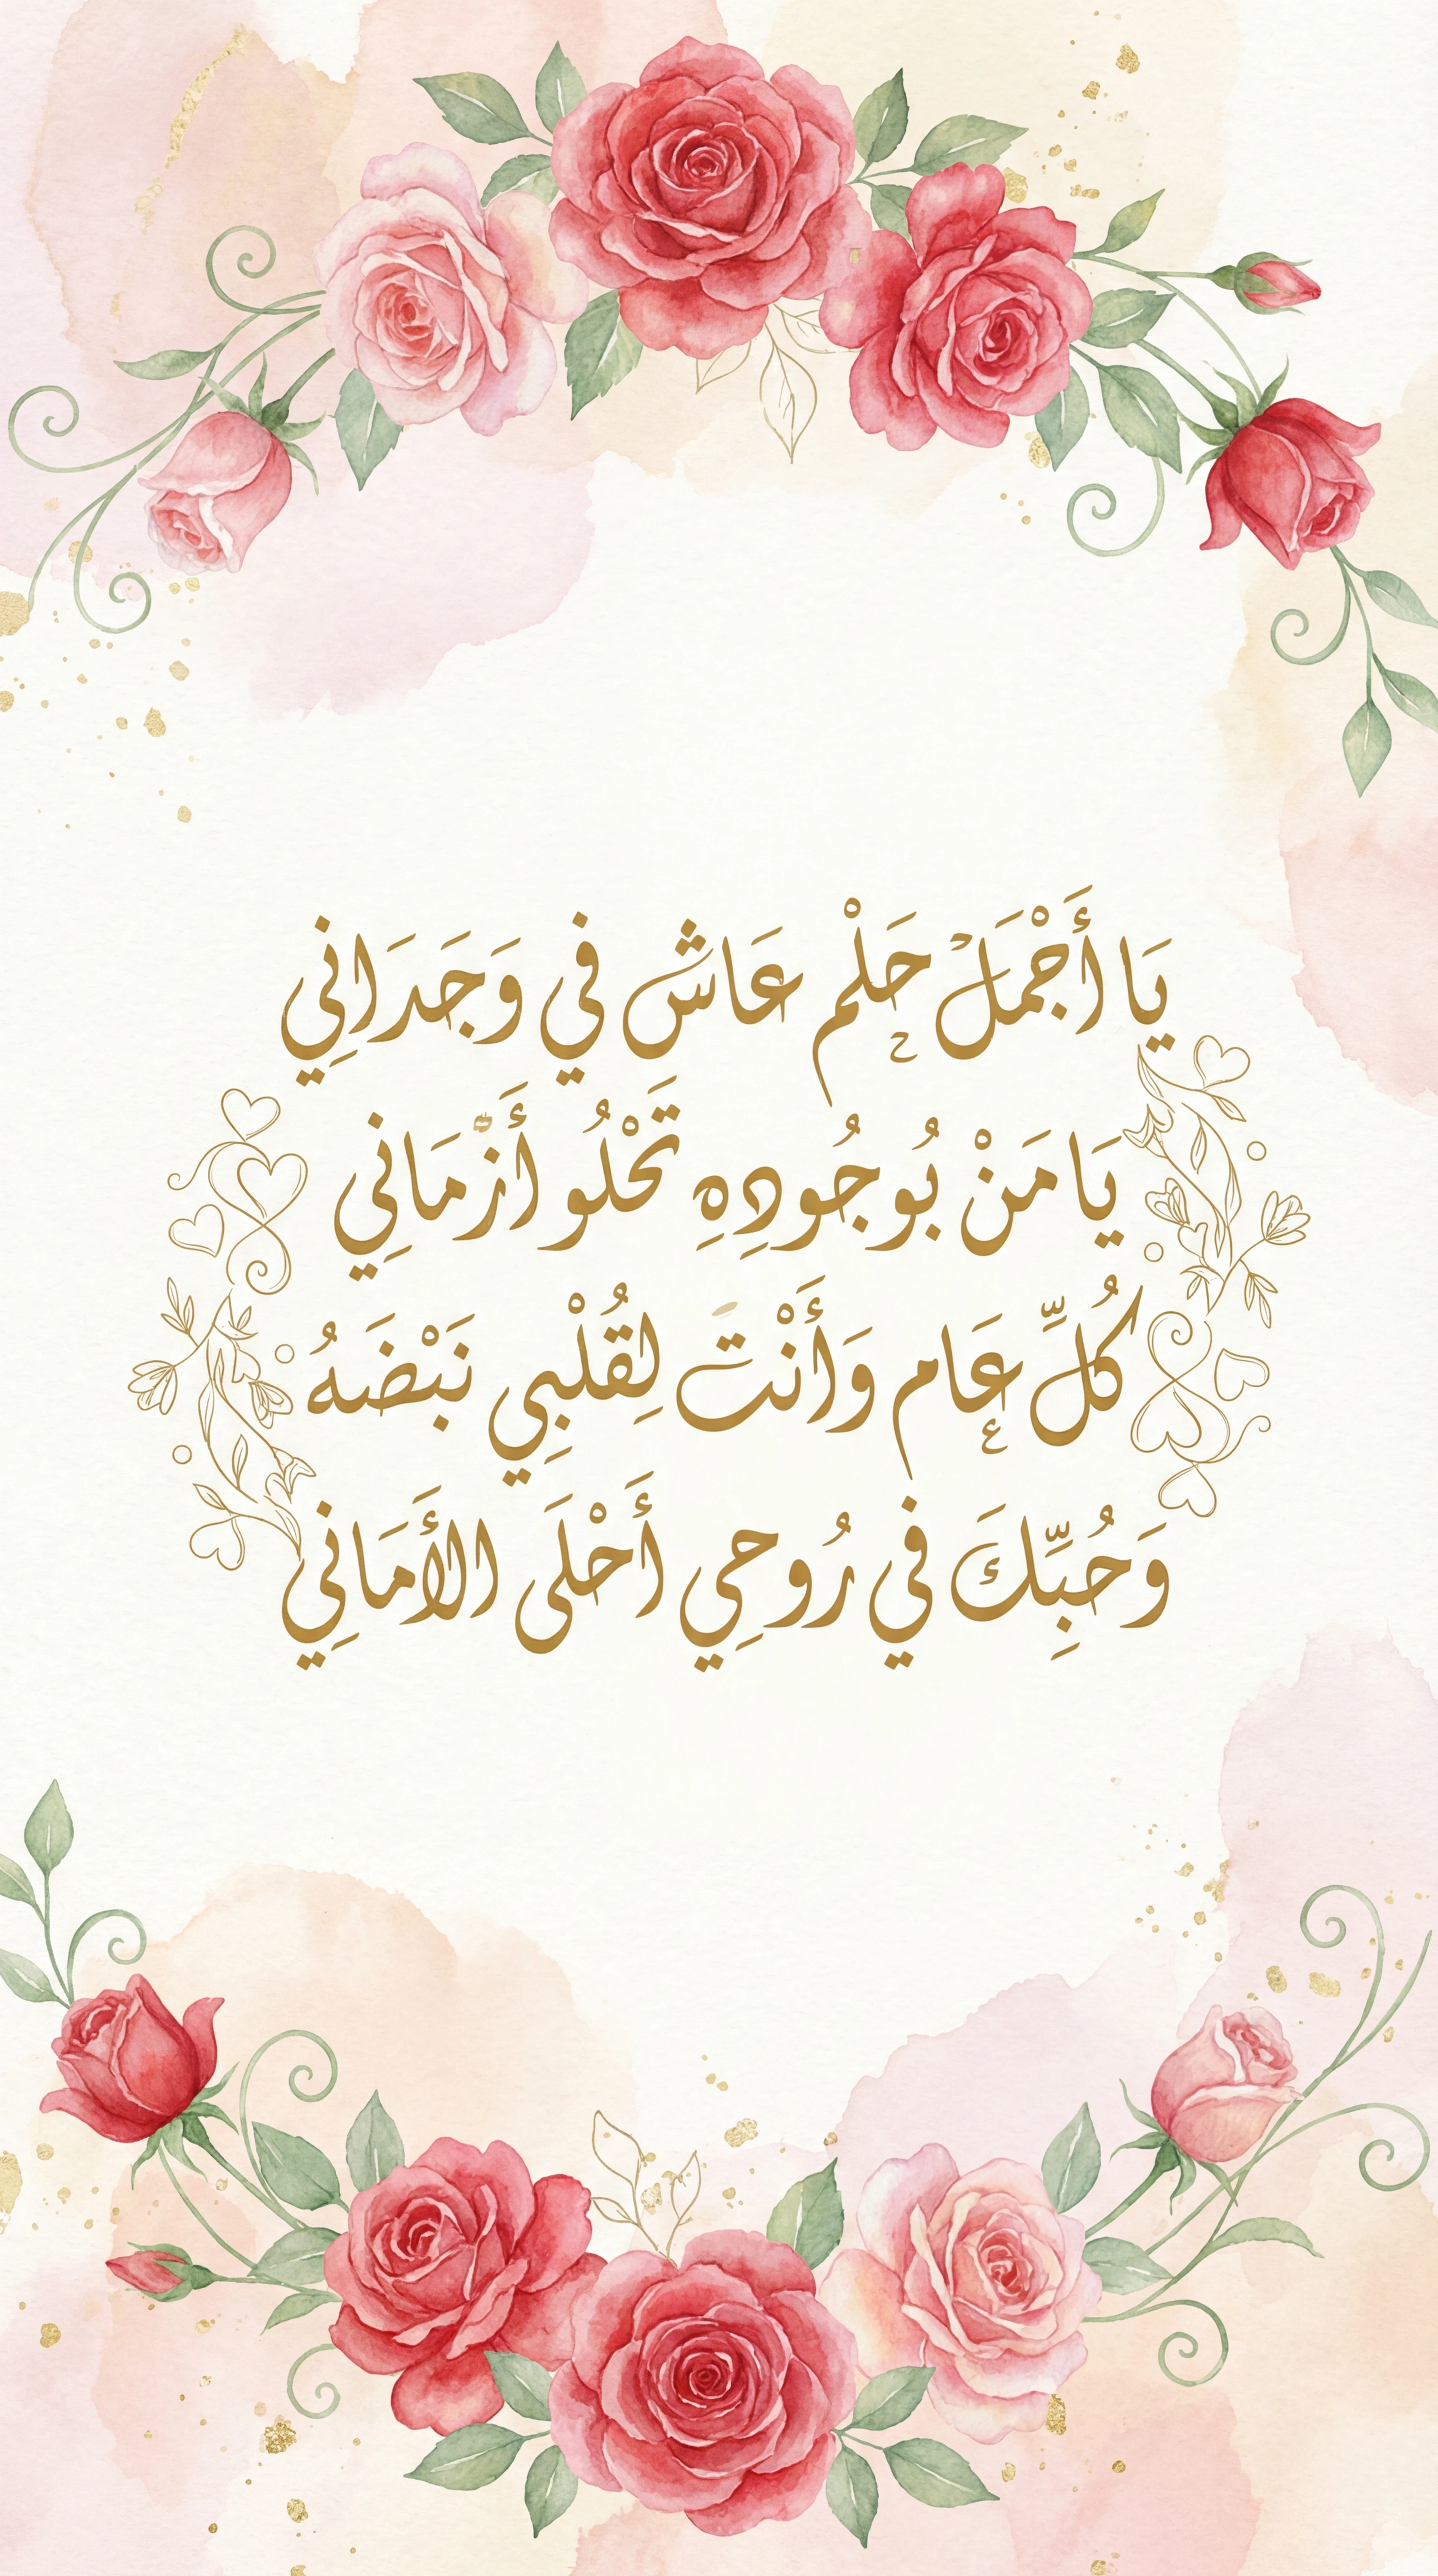 يَا أَجْمَلْ حَلْم عَاش في وَجَدَانِي
يَا مَنْ بُوجُودِهِ تَحْلُو أَزْمَانِي
كُلِّ عَام وَأَنْتَ لِقُلْبِي نَبْضَهُ
وَحُبِّكَ في رُوحِي أَحْلَى الأَمَانِي